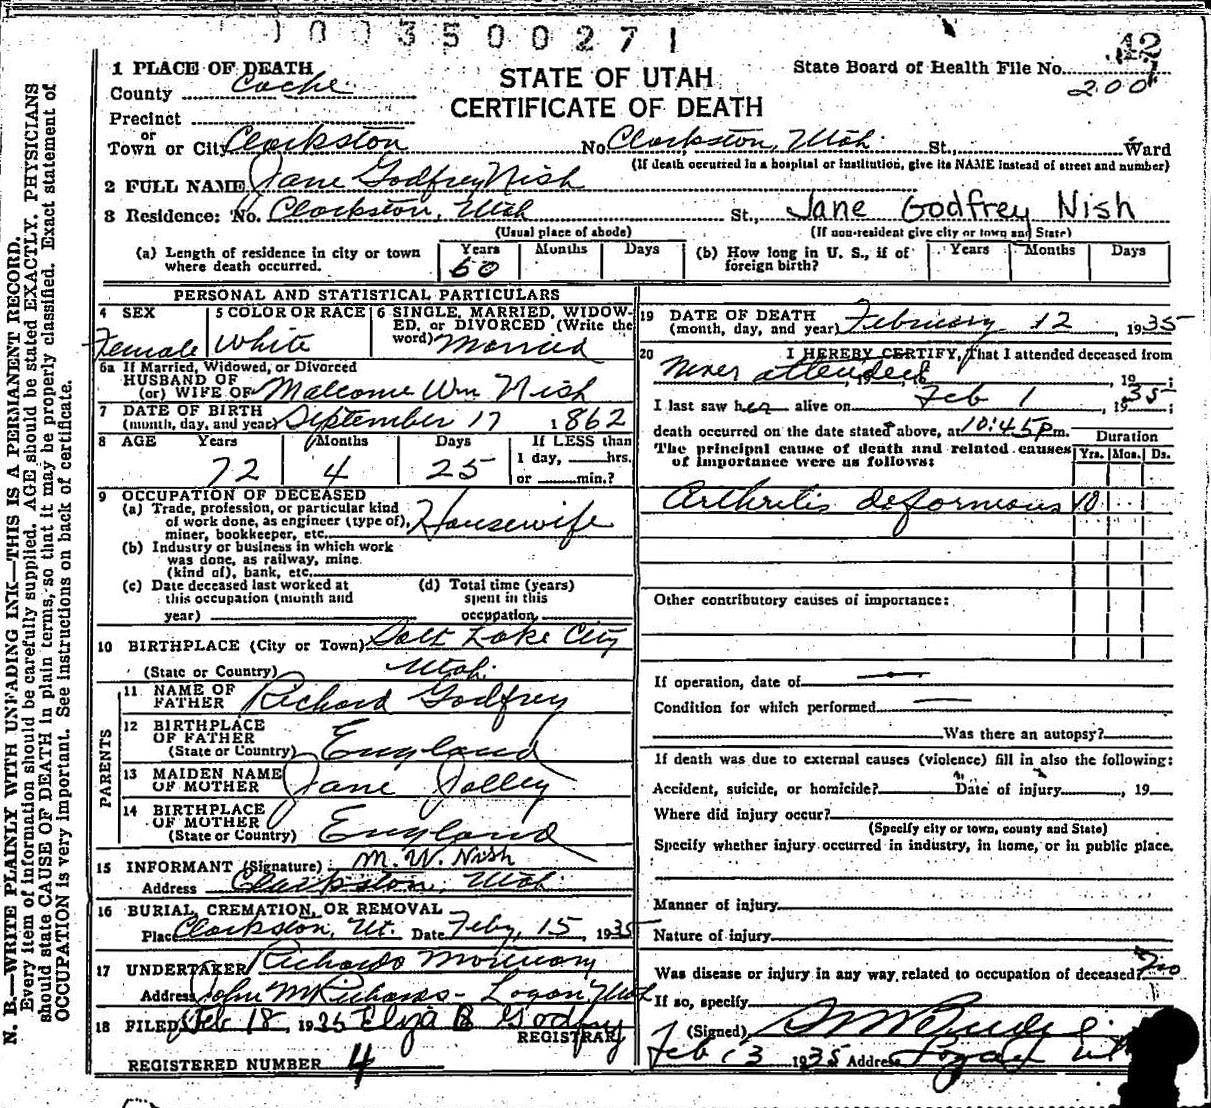 1003500271
42
1 PLACE OF DEATH
STATE OF UTAH
CERTIFICATE OF DEATH
State Board of Health File No.
200
County Cache
Precinct
or
Town or City Clarkston No. Clarkston, Utah St., Ward
(If death occurred in a hospital or institution, give its NAME instead of street and number)
2 FULL NAME Jane Godfrey Nish
3 Residence: No. Clarkston, Utah St., Jane Godfrey Nish
(Usual place of abode) (If non-resident give city or town and State)
(a) Length of residence in city or town where death occurred. Years 60 Months Days
(b) How long in U. S., if of foreign birth? Years Months Days
PERSONAL AND STATISTICAL PARTICULARS
4 SEX Female
5 COLOR OR RACE White
6 SINGLE, MARRIED, WIDOWED, or DIVORCED (Write the word) Married
6a If Married, Widowed, or Divorced
HUSBAND OF
(or) WIFE OF Malcome Wm Nish
7 DATE OF BIRTH
(month, day, and year) September 17 1862
8 AGE Years 72 Months 4 Days 25 If LESS than 1 day, hrs. or min.?
9 OCCUPATION OF DECEASED
(a) Trade, profession, or particular kind of work done, as engineer (type of), miner, bookkeeper, etc. Housewife
(b) Industry or business in which work was done, as railway, mine (kind of), bank, etc.
(c) Date deceased last worked at this occupation (month and year)
(d) Total time (years) spent in this occupation
10 BIRTHPLACE (City or Town) Salt Lake City
(State or Country) Utah
PARENTS
11 NAME OF FATHER Richard Godfrey
12 BIRTHPLACE OF FATHER (State or Country) England
13 MAIDEN NAME OF MOTHER Jane Jolley
14 BIRTHPLACE OF MOTHER (State or Country) England
15 INFORMANT (Signature) M. W. Nish
Address Clarkston, Utah
16 BURIAL, CREMATION, OR REMOVAL
Place Clarkston, Ut. Date Feby, 15, 1935
17 UNDERTAKER Richards Mortuary
Address John M Richards - Logan Utah
18 FILED Feb 18, 1935 Eliza B Godfrey
REGISTRAR
REGISTERED NUMBER 4
19 DATE OF DEATH
(month, day, and year) February 12, 1935
20 I HEREBY CERTIFY, That I attended deceased from
Never attended, 19 , to , 19 ;
I last saw her alive on Feb 1, 1935;
death occurred on the date stated above, at 10:45 p.m.
The principal cause of death and related causes of importance were as follows:
Duration
Yrs. Mos. Ds.
Arthritis deformous 10
Other contributory causes of importance:
If operation, date of —
Condition for which performed —
Was there an autopsy?
If death was due to external causes (violence) fill in also the following:
Accident, suicide, or homicide? Date of injury , 19
Where did injury occur?
(Specify city or town, county and State)
Specify whether injury occurred in industry, in home, or in public place.
Manner of injury
Nature of injury
Was disease or injury in any way related to occupation of deceased? no
If so, specify
(Signed)
Feb 13 1935 Address Logan Utah
N. B.—WRITE PLAINLY WITH UNFADING INK—THIS IS A PERMANENT RECORD.
Every item of information should be carefully supplied. AGE should be stated EXACTLY. PHYSICIANS
should state CAUSE OF DEATH in plain terms, so that it may be properly classified. Exact statement of
OCCUPATION is very important. See instructions on back of certificate.